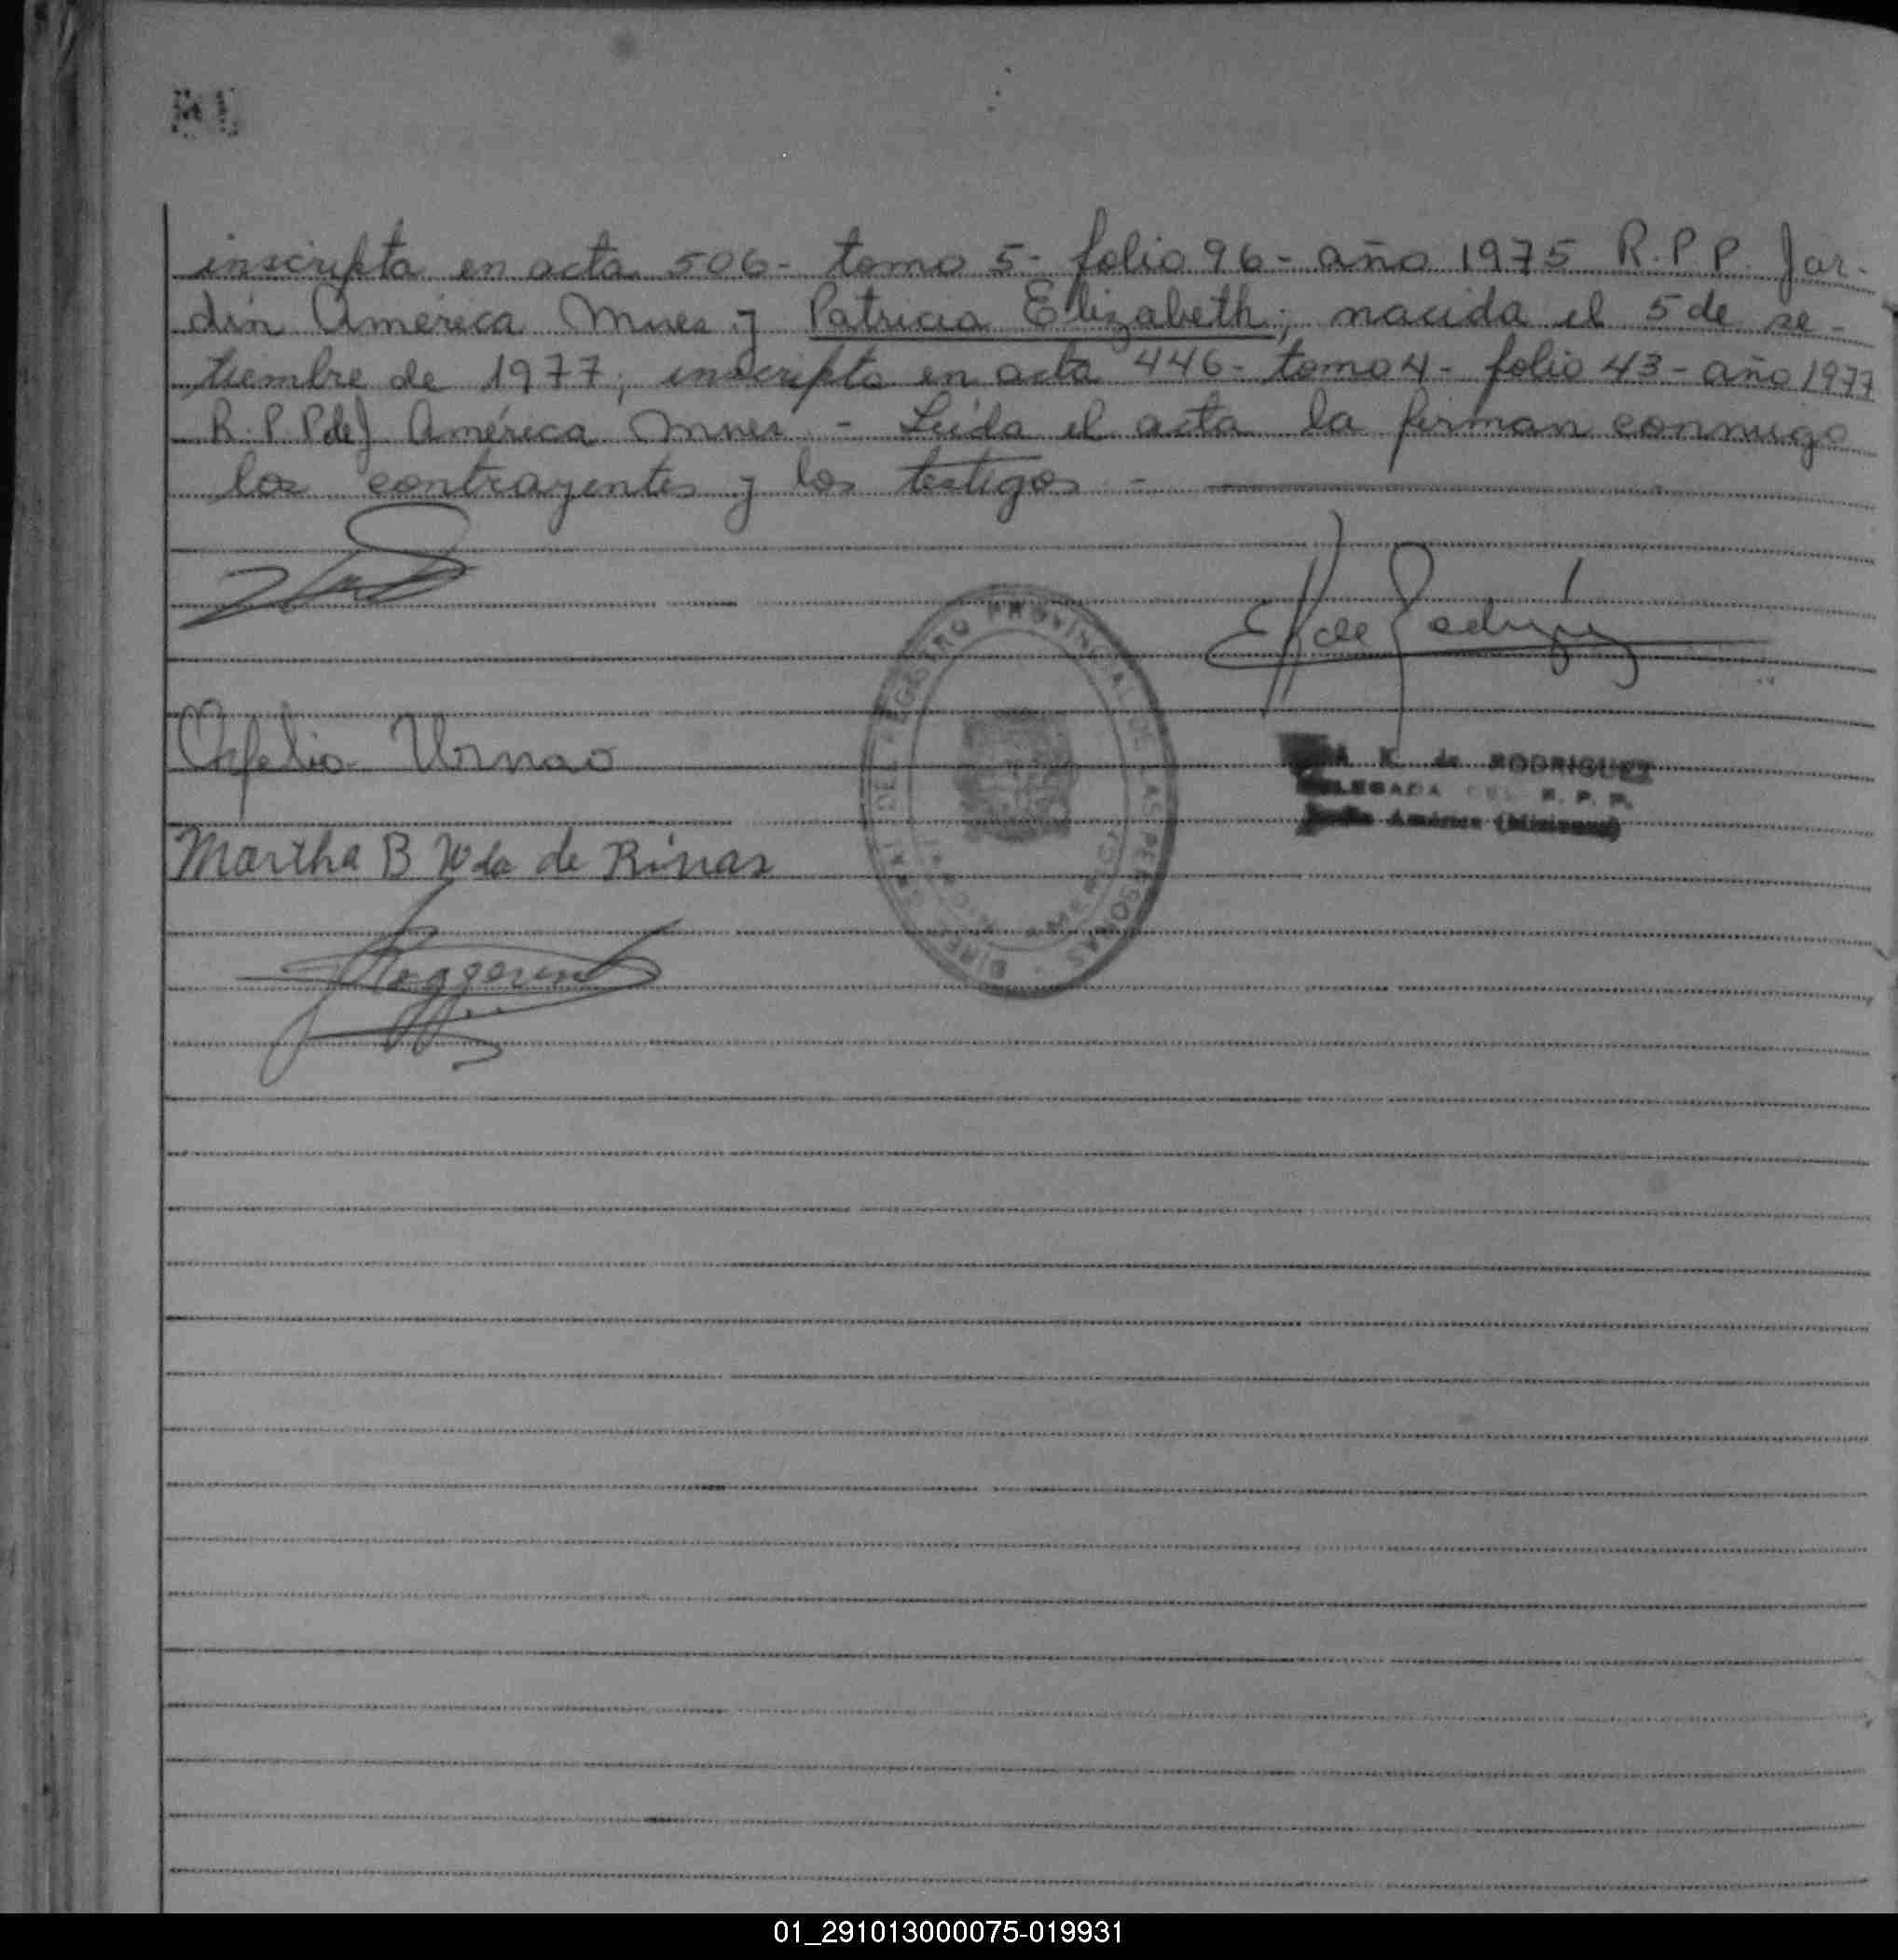 inscripta en acta 506- tomo 5- folio 96- año 1975 R.P.P. Jar-
dín América Mnes y Patricia Elizabeth; nacida el 5 de se-
tiembre de 1977; inscripta en acta 446- tomo 4- folio 43- año 1977
R.P.P de J América Mnes - Leída el acta la firman conmigo
los contrayentes y los testigos -
E K de Rodríguez
Urnao
K. de RODRIGUEZ
DELEGADA DEL R. P. P.
Jardín América (Misiones)
Martha B Wda de Rivas
REGISTRO PROVINCIAL DE LAS PERSONAS
01_291013000075-019931